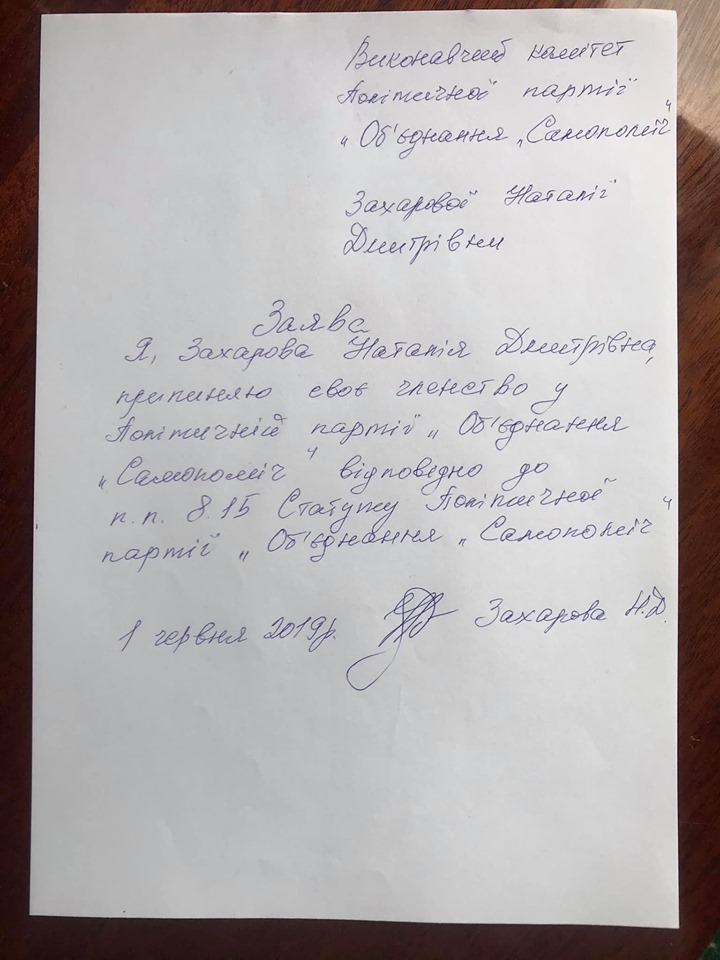 Виконавчий комітет
Політичної партії
„Об'єднання „Самопоміч"
Захарової Наталії
Дмитрівни
Заява
Я, Захарова Наталія Дмитрівна,
припиняю своє членство у
Політичній партії „ Об'єднання
„Самопоміч" відповідно до
п.п. 8.15 Статуту Політичної
партії „ Об'єднання „Самопоміч"
1 червня 2019р. Захарова Н.Д.